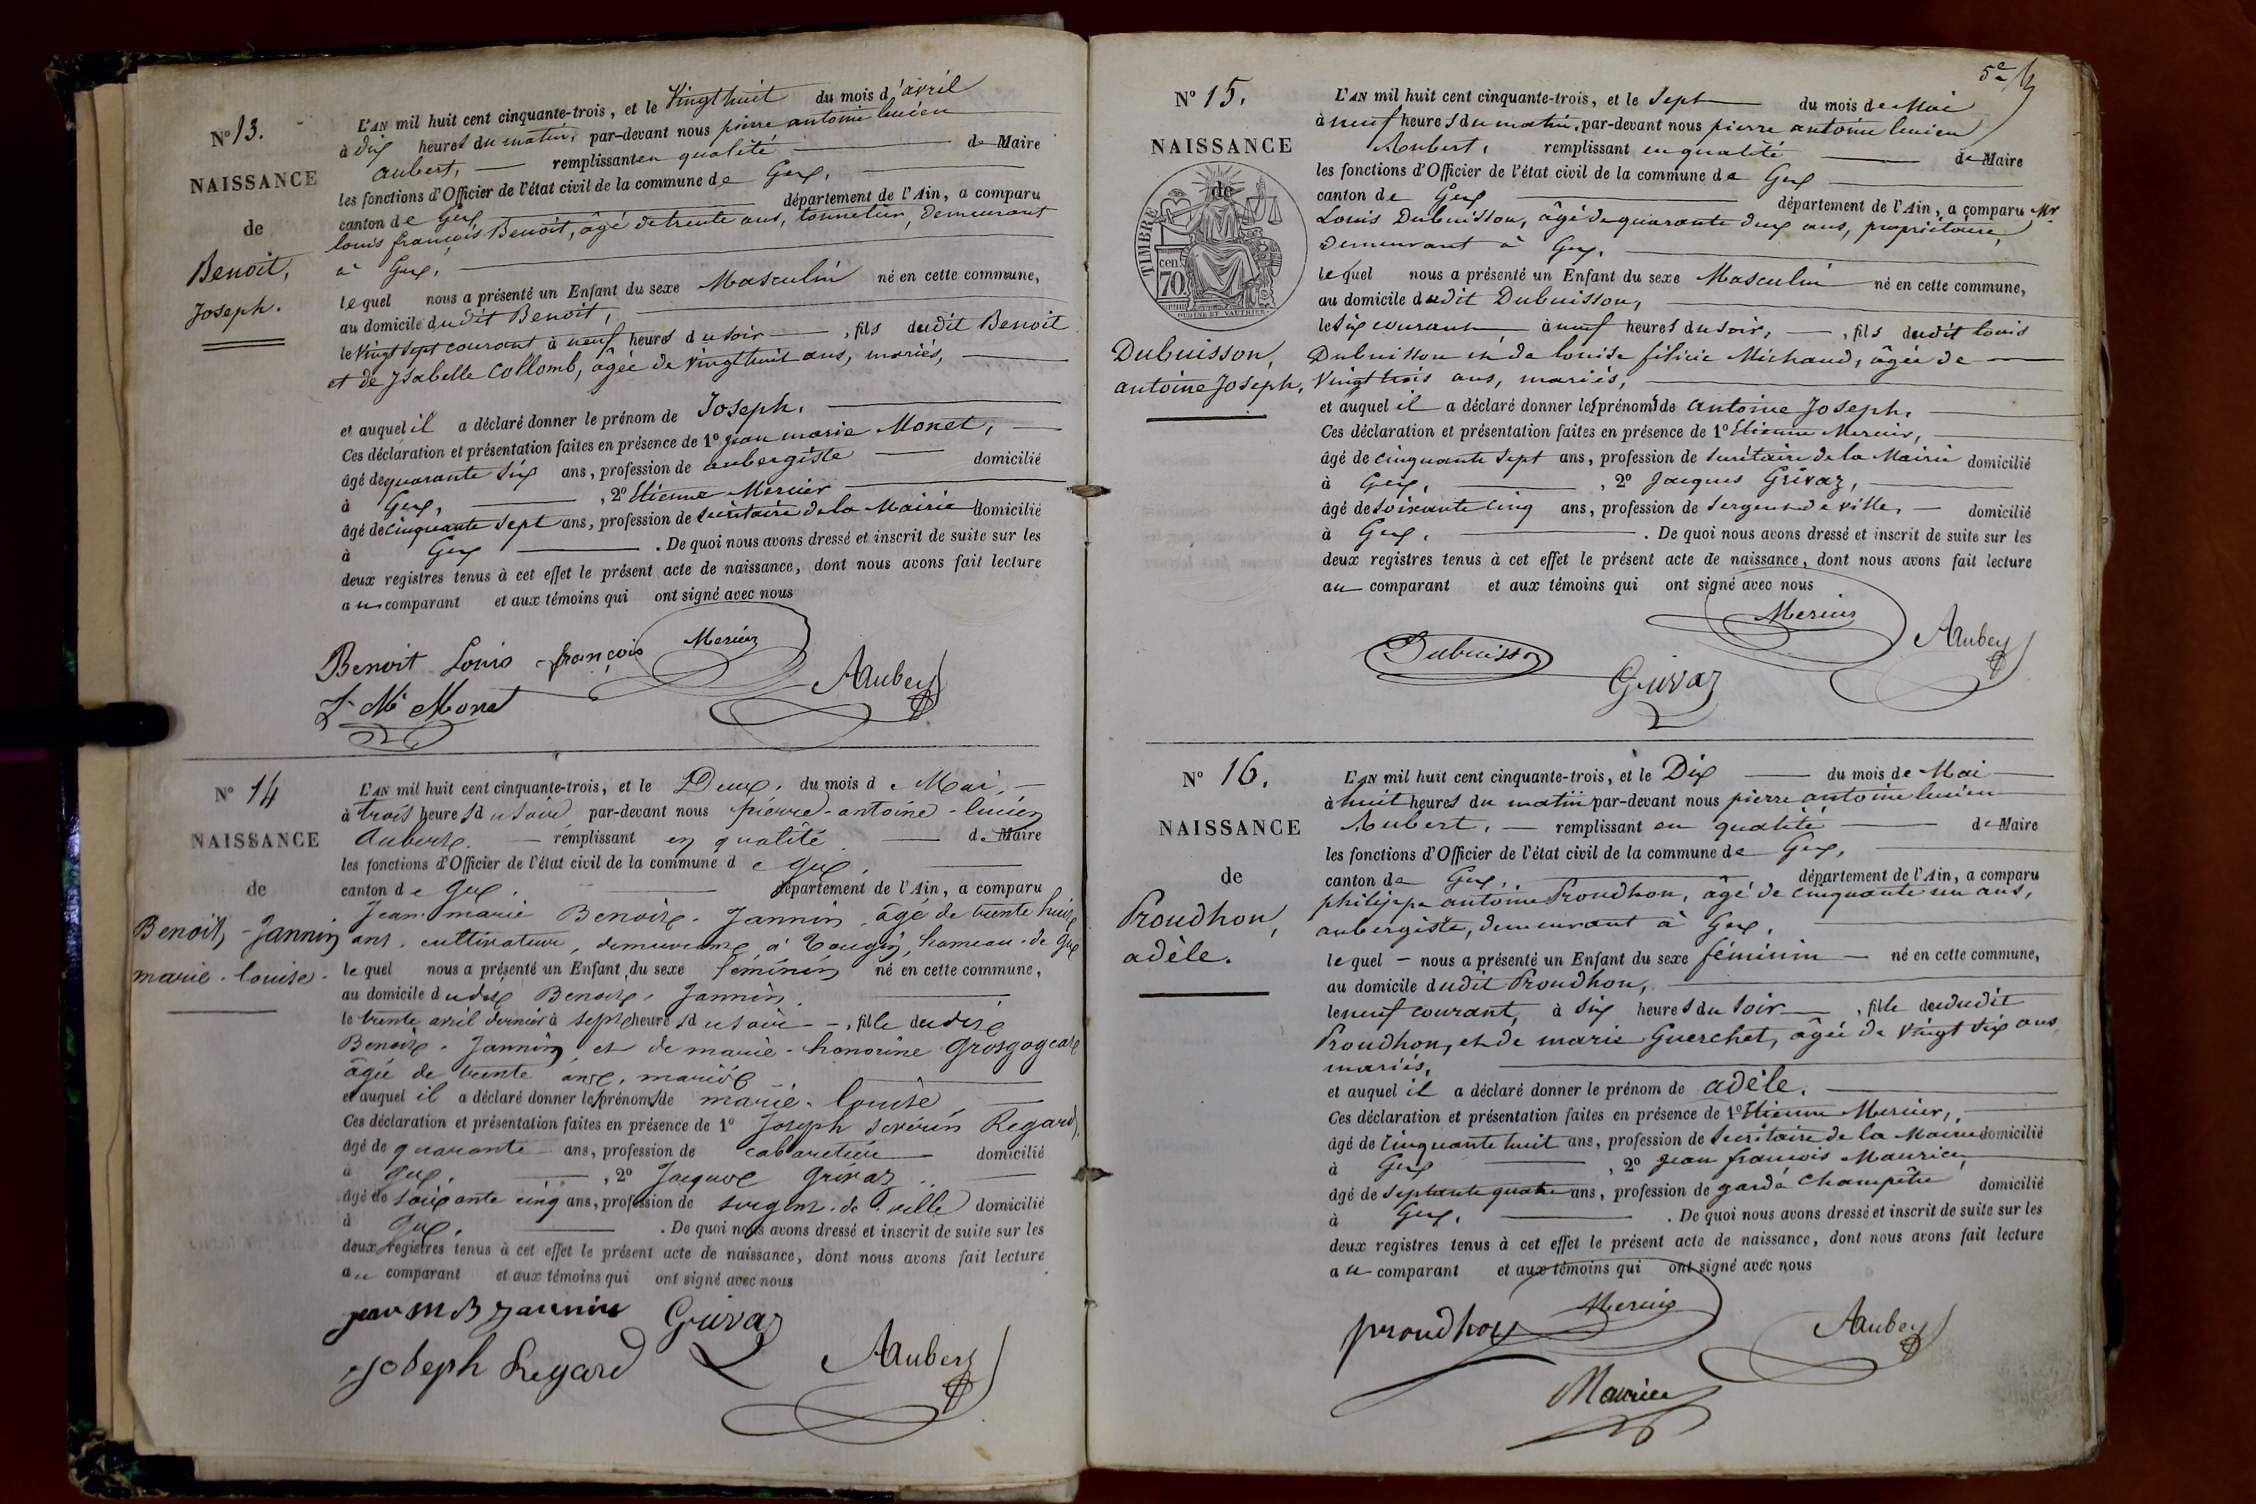 N° 13.
NAISSANCE
de
Benoit,
Joseph.
L'AN mil huit cent cinquante-trois, et le Vingt huit du mois d'avril
à dix heures du matin, par-devant nous pierre antoine lucien
aubert, remplissant en qualité de Maire
les fonctions d'Officier de l'état civil de la commune de Gex,
canton de Gex département de l'Ain, a comparu
louis françois Benoit, âgé de trente ans, tonnelier, demeurant
à Gex,
lequel nous a présenté un Enfant du sexe Masculin né en cette commune,
au domicile dudit Benoit,
le vingt sept courant à neuf heures du soir, fils dudit Benoit
et de Ysabelle Collomb, âgée de vingt huit ans, mariés,
et auquel il a déclaré donner le prénom de Joseph.
Ces déclaration et présentation faites en présence de 1° jean marie Monet,
âgé de quarante six ans, profession de aubergiste domicilié
à Gex, , 2° Etienne Mercier
âgé de cinquante sept ans, profession de secrétaire de la Mairie domicilié
à Gex . De quoi nous avons dressé et inscrit de suite sur les
deux registres tenus à cet effet le présent acte de naissance, dont nous avons fait lecture
au comparant et aux témoins qui ont signé avec nous
Benoit Louis françois Mercier
Monet Aubert
N° 14
NAISSANCE
de
Benoit, Jannin
marie louise.
L'AN mil huit cent cinquante-trois, et le Deux. du mois de Mai,
à trois heures du soir par-devant nous pierre antoine lucien
Aubert. remplissant en qualité de Maire
les fonctions d'Officier de l'état civil de la commune de Gex,
canton de Gex. département de l'Ain, a comparu
Jean marie Benoit. Jannin. âgé de trente huit
ans. cultivateur, demeurant à Tougin, hameau de Gex
lequel nous a présenté un Enfant du sexe féminin né en cette commune,
au domicile dudit Benoit, Jannin.
le trente avril dernier à sept heures du soir, fille dudit
Benoit. Jannin et de marie honorine Grosgogeat
âgée de trente ans, mariés
et auquel il a déclaré donner les prénoms de marie louise
Ces déclaration et présentation faites en présence de 1° Joseph Séverin Regard,
âgé de quarante ans, profession de cabaretier domicilié
à Gex. , 2° Jacques Grivaz
âgé de soixante cinq ans, profession de sergent de ville domicilié
à Gex. . De quoi nous avons dressé et inscrit de suite sur les
deux registres tenus à cet effet le présent acte de naissance, dont nous avons fait lecture
au comparant et aux témoins qui ont signé avec nous
jean m B jannin Grivaz
joseph Regard Aubert
5e
N° 15.
NAISSANCE
de
TIMBRE
cen
70
Dubuisson,
antoine Joseph.
L'AN mil huit cent cinquante-trois, et le Sept du mois de Mai
à neuf heures du matin, par-devant nous pierre antoine lucien
Aubert, remplissant en qualité de Maire
les fonctions d'Officier de l'état civil de la commune de Gex
canton de Gex département de l'Ain, a comparu Mr
Louis Dubuisson, âgé de quarante deux ans, propriétaire,
demeurant à Gex,
lequel nous a présenté un Enfant du sexe Masculin né en cette commune,
au domicile dudit Dubuisson,
le six courant à neuf heures du soir, fils dudit louis
Dubuisson et de louise félicie Michaud, âgée de
Vingt trois ans, mariés,
et auquel il a déclaré donner les prénoms de antoine Joseph.
Ces déclaration et présentation faites en présence de 1° Etienne Mercier,
âgé de cinquante sept ans, profession de secrétaire de la Mairie domicilié
à Gex, , 2° Jacques Grivaz,
âgé de soixante cinq ans, profession de sergent de ville, domicilié
à Gex, . De quoi nous avons dressé et inscrit de suite sur les
deux registres tenus à cet effet le présent acte de naissance, dont nous avons fait lecture
au comparant et aux témoins qui ont signé avec nous
Mercier
Dubuisson Grivaz Aubert
N° 16.
NAISSANCE
de
Proudhon,
adèle.
L'AN mil huit cent cinquante-trois, et le Dix du mois de Mai
à huit heures du matin par-devant nous pierre antoine lucien
Aubert, remplissant en qualité de Maire
les fonctions d'Officier de l'état civil de la commune de Gex,
canton de Gex, département de l'Ain, a comparu
philippe antoine Proudhon, âgé de cinquante un ans,
aubergiste, demeurant à Gex,
lequel nous a présenté un Enfant du sexe féminin né en cette commune,
au domicile dudit Proudhon,
le neuf courant, à six heures du soir, fille dudit
Proudhon, et de marie Guerchet, âgée de vingt six ans
mariés,
et auquel il a déclaré donner le prénom de adèle.
Ces déclaration et présentation faites en présence de 1° Etienne Mercier,
âgé de cinquante huit ans, profession de secrétaire de la Mairie domicilié
à Gex , 2° jean françois Maurice,
âgé de septante quatre ans, profession de garde champêtre domicilié
à Gex, . De quoi nous avons dressé et inscrit de suite sur les
deux registres tenus à cet effet le présent acte de naissance, dont nous avons fait lecture
au comparant et aux témoins qui ont signé avec nous
proudhon Mercier Aubert
Maurice